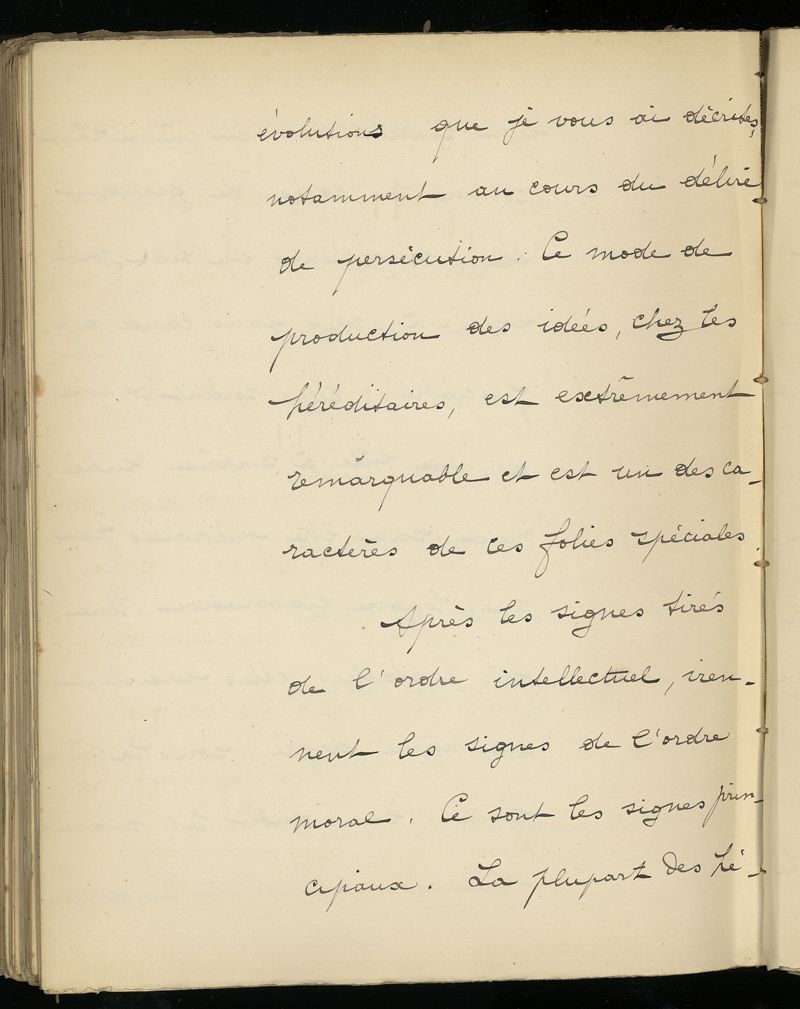 évolutions que je vous ai décrites,
notamment au cours du délire
de persécution. Ce mode de
production des idées, chez les
héréditaires, est extrêmement
remarquable et est un des ca-
ractères de ces folies spéciales.
Après les signes tirés
de l'ordre intellectuel, vien-
nent les signes de l'ordre
moral. Ce sont les signes prin-
cipaux. La plupart des hé-